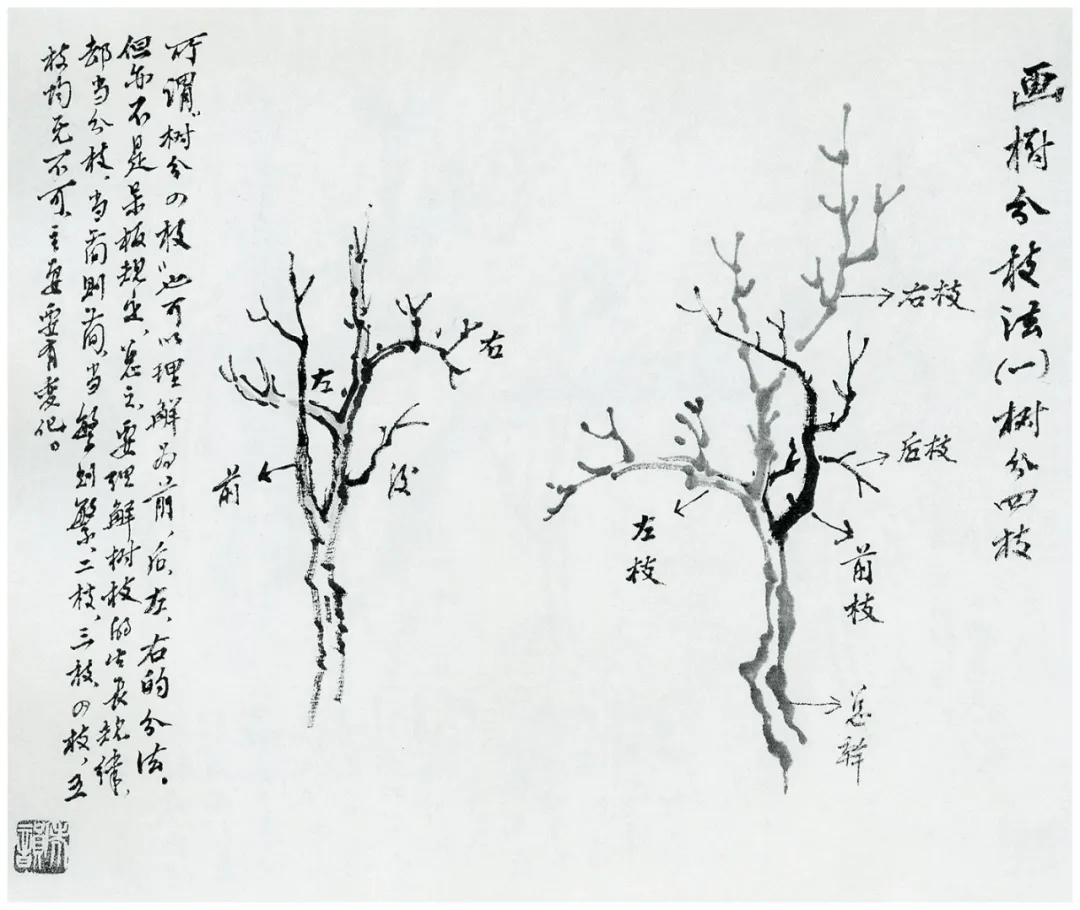 画樹分枝法(一)树分四枝
右枝
后枝
前枝
左枝
总幹
右
左
前
後
所谓“树分四枝”也可以理解为前、后、左、右的分法。
但亦不是呆板规定、总之、要理解树枝的生长规律、
都当分枝、当简则简、当繁则繁、二枝、三枝、四枝、五
枝均无不可、主要要有变化。